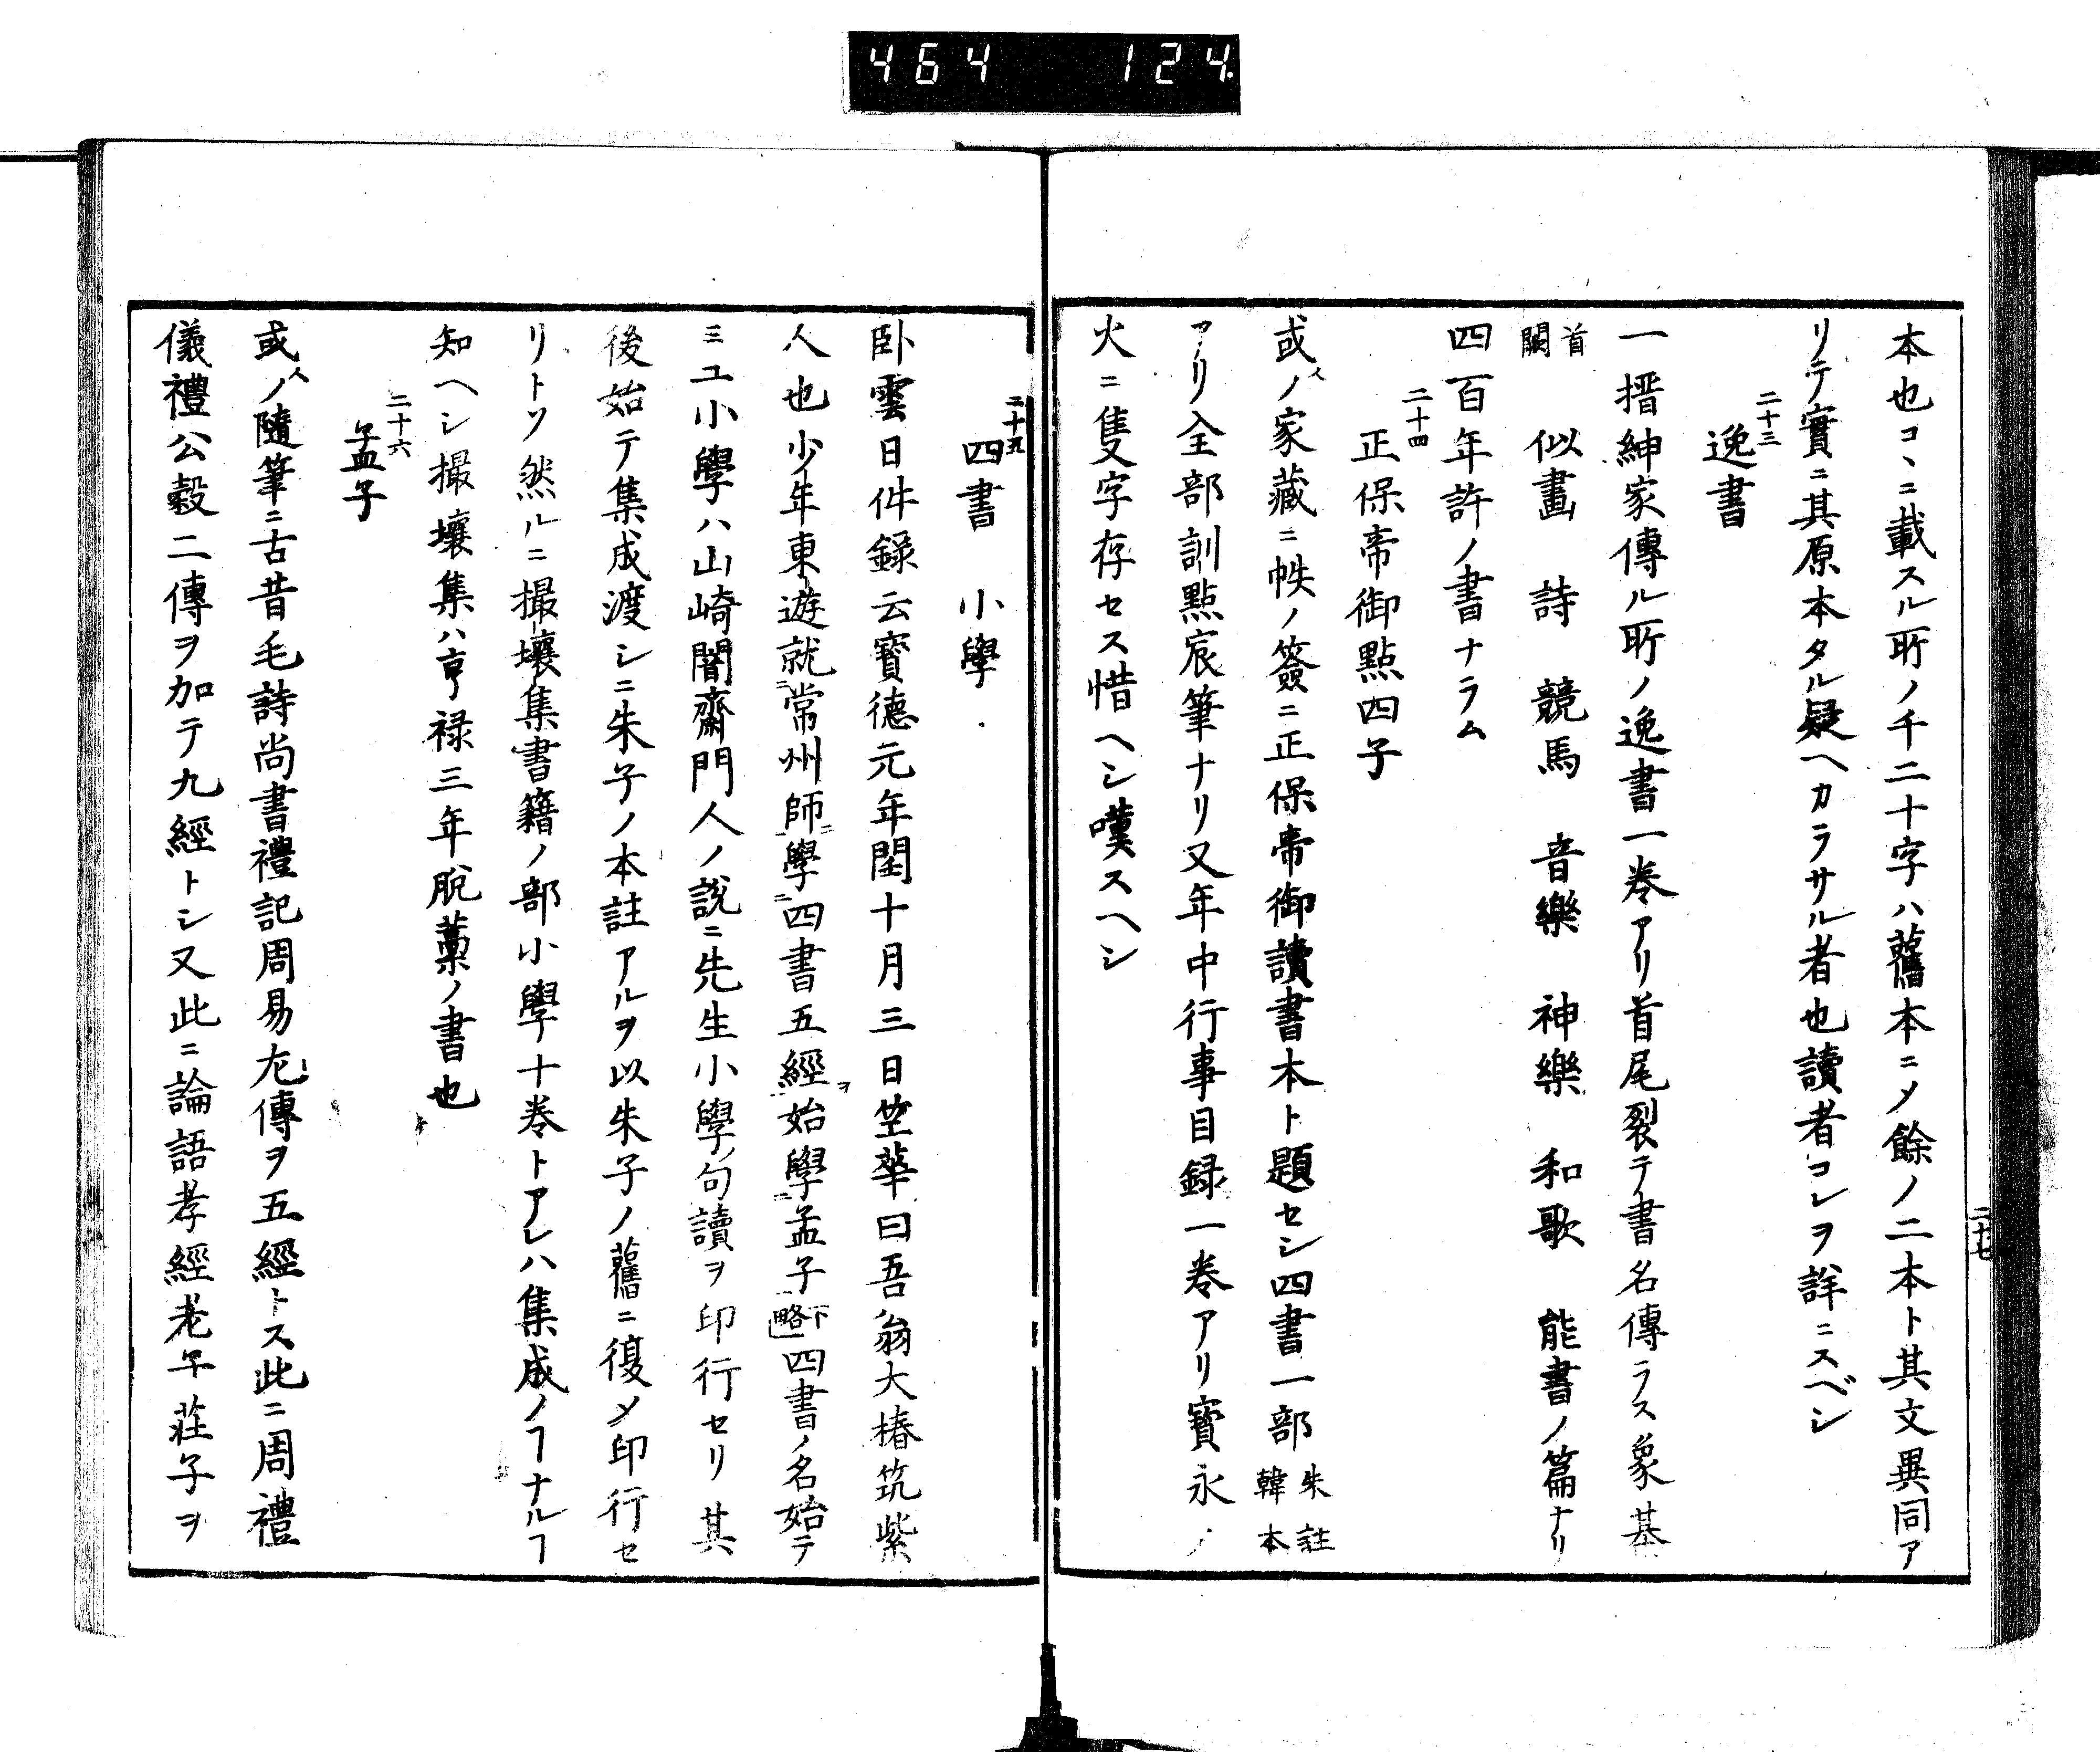 464 124.
本也コヽニ載スル所ノ千二十字ハ舊本ニメ餘ノ二本ト其文異同ア
リテ實ニ其原本タル疑ヘカラサル者也讀者コレヲ詳ニスベシ
二十三
逸書
一搢紳家傳ル所ノ逸書一巻アリ首尾裂テ書名傳ラス象基
首闕 似畫 詩 競馬 音樂 神樂 和歌 能書ノ篇ナリ
四百年許ノ書ナラム
二十四
正保帝御點四子
或人ノ家藏ニ帙ノ簽ニ正保帝御讀書本ト題セシ四書一部朱註韓本
アリ全部訓點宸筆ナリ又年中行事目録一巻アリ寶永ノ
火ニ隻字存セス惜ヘシ嘆スヘシ
二十七
二十五
四書 小學
卧雲日件録云寳德元年閏十月三日竺華曰吾翁大椿筑紫
人也少年東遊就ニ常州師ニ學ニ四書五經ヲ始學ニ孟子下略四書ノ名始テ
ミユ小學ハ山崎闇齋門人ノ說ニ先生小學ノ句讀ヲ印行セリ其
後始テ集成渡シニ朱子ノ本註アルヲ以朱子ノ舊ニ復メ印行セ
リトソ然ルニ撮壤集書籍ノ部小學十巻トアレハ集成ノヿナルヿ
知ヘシ撮壤集ハ亨禄三年脫藁ノ書也
二十六
孟子
或人ノ隨筆ニ古昔毛詩尚書禮記周易左傳ヲ五經トス此ニ周禮
儀禮公穀二傳ヲ加テ九經トシ又此ニ論語孝經老子莊子ヲ